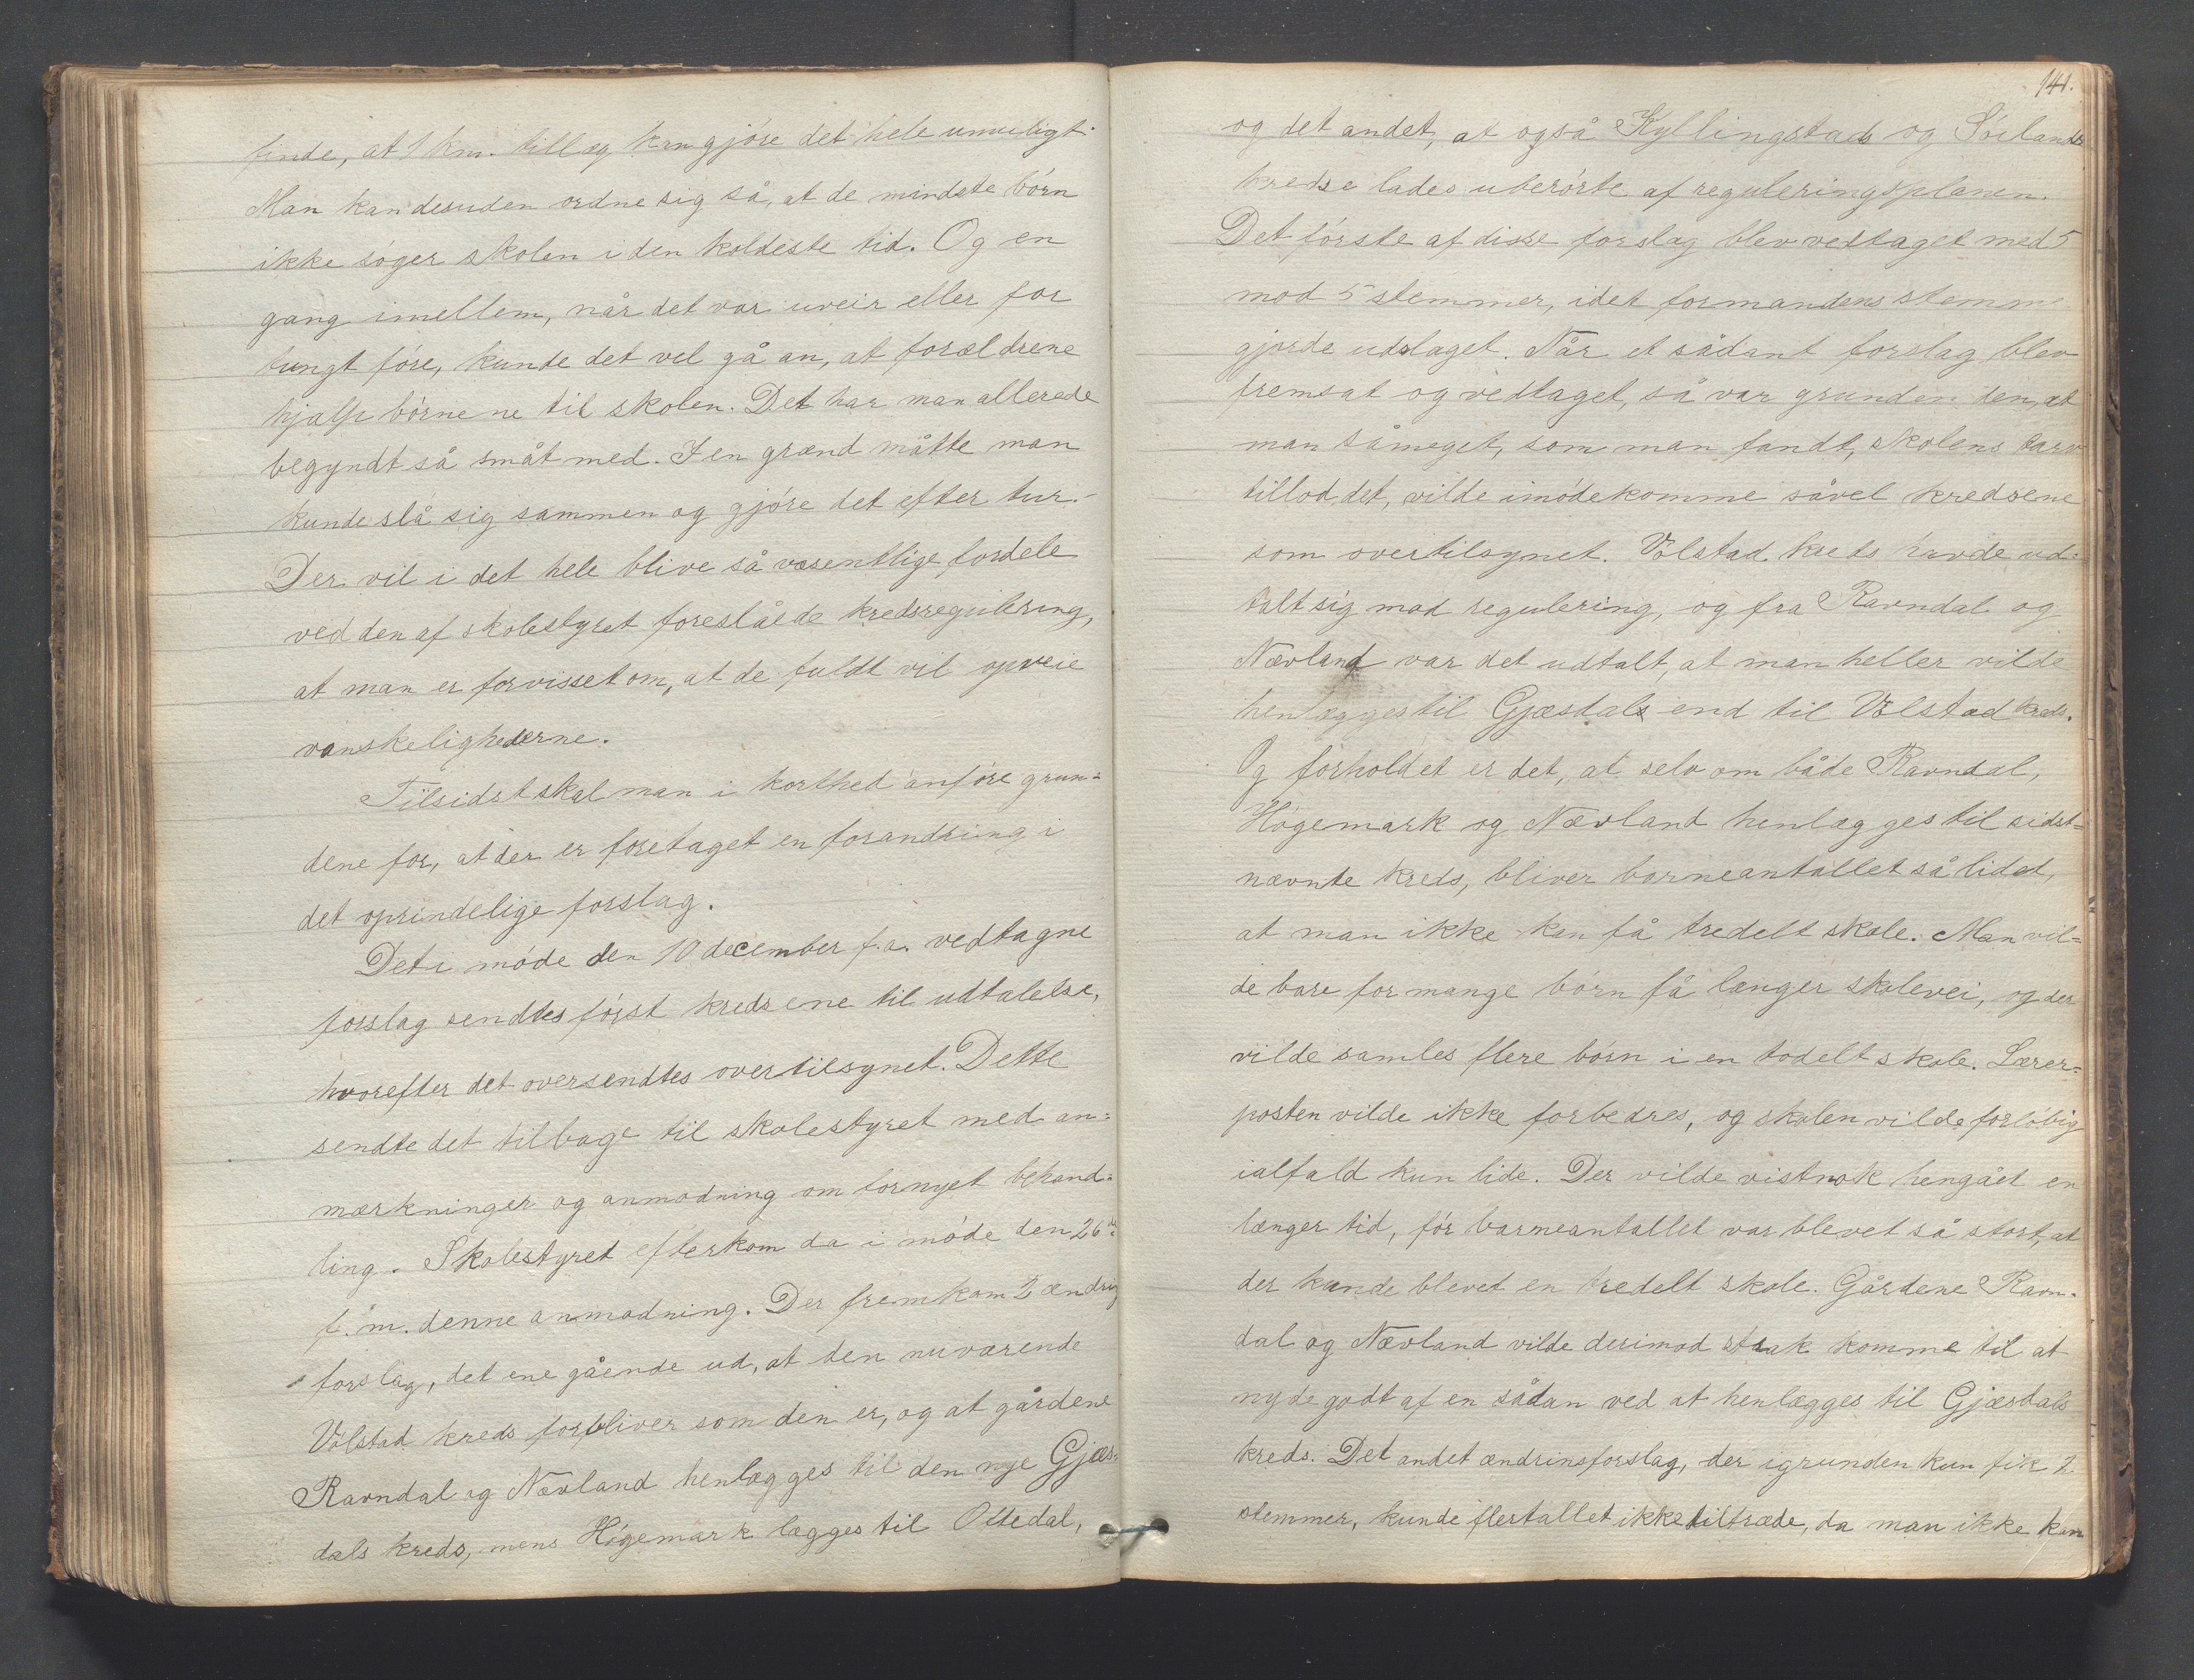 finde, at 1 km. tillæg kan gjöre det hele umuligt.
Man kan desuden ordne sig så, at de mindste börn
ikke söger skolen i den koldeste tid. Og en
gang imellem, når det var uveir eller for
tungt före, kunde det vel gå an, at forældrene
hjalp börnene til skolen. Det har man allerede
begyndt så småt med. I en grænd måtte man
kunde slå sig sammen og gjöre det efter tur.
Der vil i det hele blive så væsentlige fordele
ved den af skolestyret foreslåede kredsregulering,
at man er forvisset om, at de fuldt vil opveie
vanskelighederne.
Tilsidst skal man i korthed anföre grun=
dene for, at der er foretaget en forandring i
det oprindelige forslag.
Det i möde den 10 december f.a. vedtagne
forslag sendtes först kredsene til udtalelse,
hvorefter det oversendtes overtilsynet. Dette
sendte det tilbage til skolestyret med an=
mærkninger og anmodning om fornyet behand=
ling. Skolestyret efterkom da i möde den 26de
f. m. denne anmodning. Der fremkom 2 ændrings
forslag, det ene gående ud, at den nuværende
Völstad kreds forbliver som den er, og at gårdene
Ravndal og Nævland henlægges til den nye Gjæs=
dals kreds, mens Högemark lægges til Oltedal,
141.
og det andet, at også Kyllingstads og Söilands
kredse lades uberörte af reguleringsplanen.
Det förste af disse forslag blev vedtaget med 5
mod 5 stemmer, idet formandens stemme
gjorde udslaget. Når et sådant forslag blev
fremsat og vedtaget, så var grunden den, at
man såmeget, som man fandt, skolens tarv
tillod det, vilde imödekomme såvel kredsene
som overtilsynet. Völstad kreds havde ud=
talt sig mod regulering, og fra Ravndal og
Nævland var det udtalt, at man heller vilde
henlægges til Gjæsdals end til Völstad kreds.
Og forholdet er det, at selv om både Ravndal,
Högemark og Nævland henlægges til sidst=
nævnte kreds, bliver barneantallet så lidet,
at man ikke kan få tredelt skole. Man vil=
de bare for mange börn få længer skolevei, og der
vilde samles flere börn i en todelt skole. Lærer=
posten vilde ikke forbedres, og skolen vilde forlöbig
ialfald kun lide. Der vilde vistnok hengået en
længer tid, för barneantallet var blevet så stort, at
der kunde blevet en tredelt skole. Gårdene Ravn=
dal og Nævland vilde derimod strak komme til at
nyde godt af en sådan ved at henlægges til Gjæsdals
kreds. Det andet ændrinsforslag, der igrunden kun fik 2
stemmer, kunde flertallet ikke tiltræde, da man ikke kan